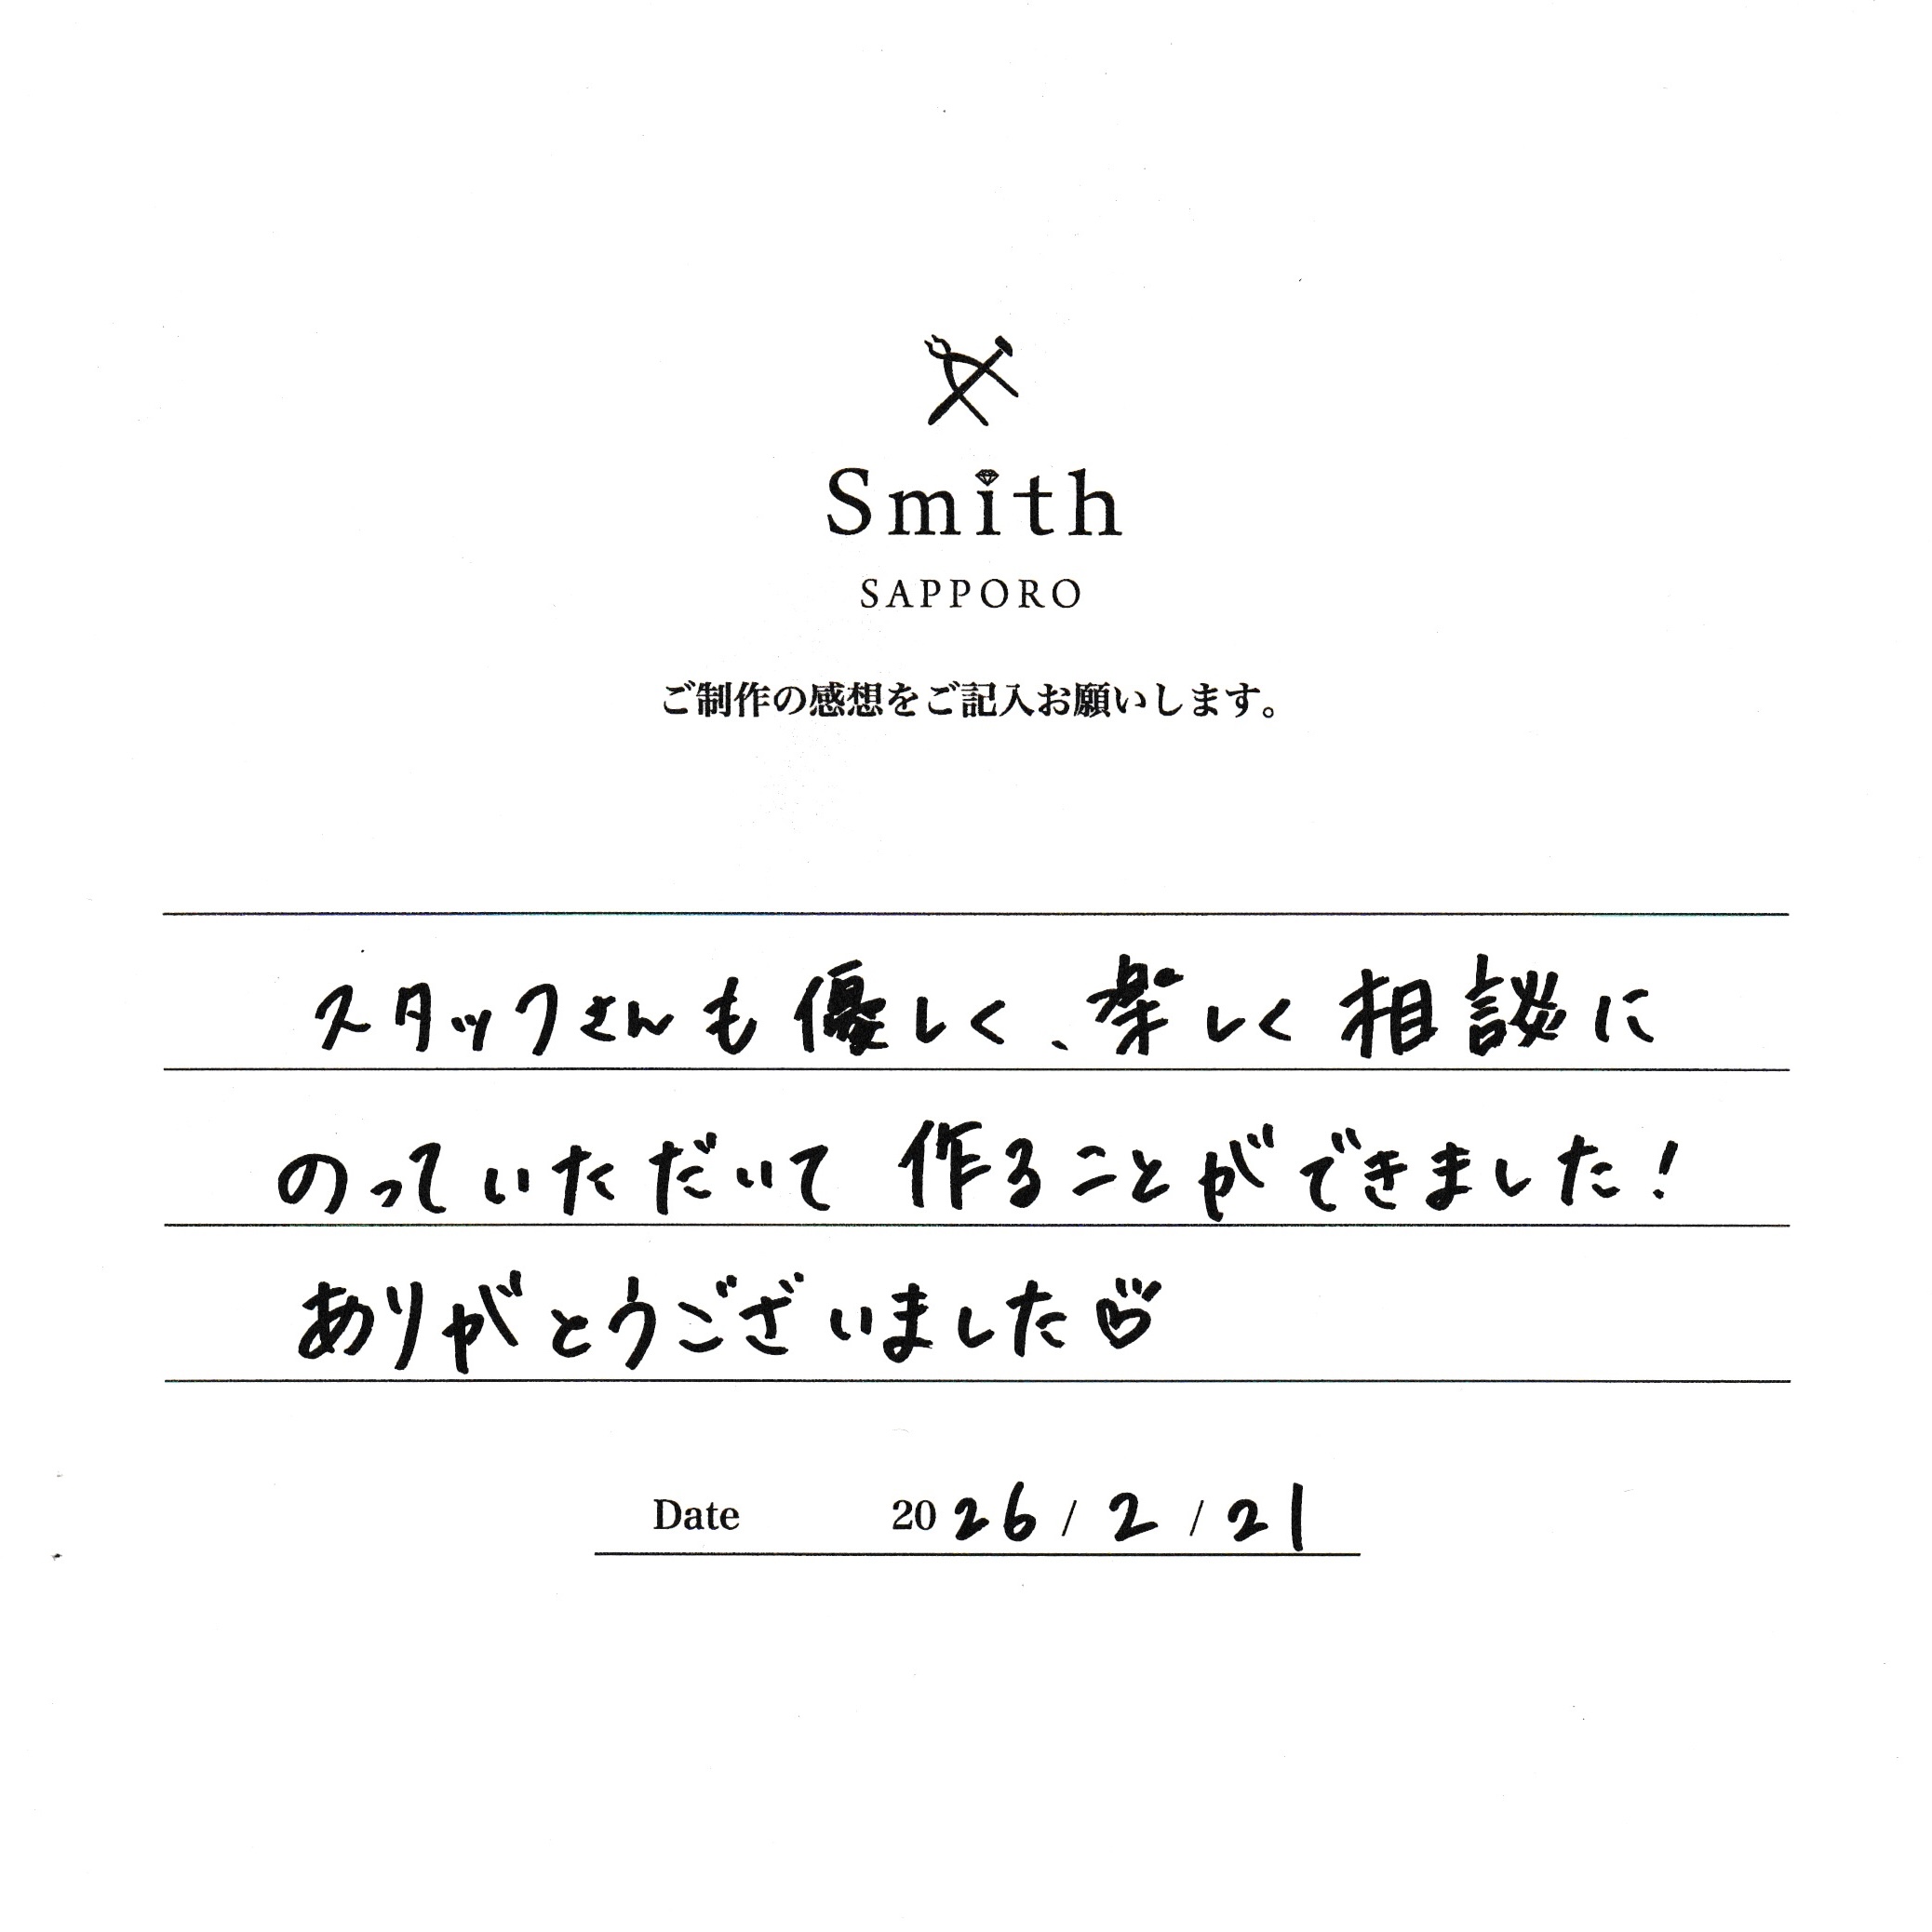 Smith
SAPPORO
ご制作の感想をご記入お願いします。
スタッフさんも優しく、楽しく相談に
のっていただいて作ることができました!
ありがとうございました♡
Date 2026/2/21